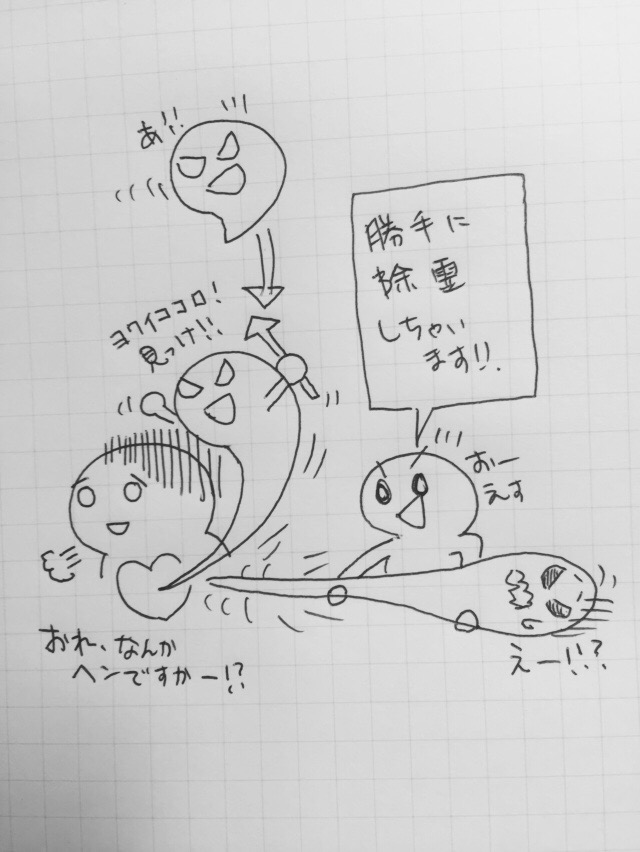 あ!!
ヨワイココロ!
見っけ!!
勝手に
除霊
しちゃい
ます!!
おー
えす
おれ、なんか
ヘンですかー!?
えー!!?